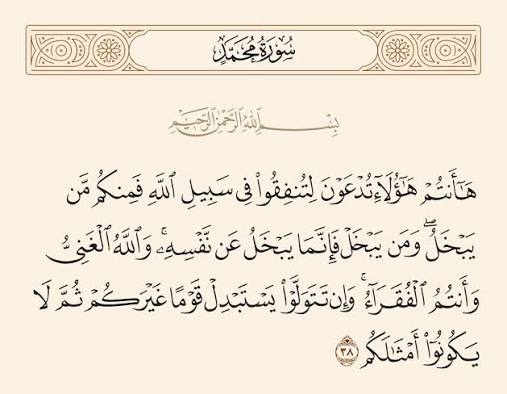 سُورَةُ مُحَمَّدٍ
بِسْمِ ٱللَّهِ ٱلرَّحْمَٰنِ ٱلرَّحِيمِ
هَٰٓأَنتُمْ هَٰٓؤُلَآءِ تُدْعَوْنَ لِتُنفِقُوا۟ فِى سَبِيلِ ٱللَّهِ فَمِنكُم مَّن
يَبْخَلُ ۖ وَمَن يَبْخَلْ فَإِنَّمَا يَبْخَلُ عَن نَّفْسِهِۦ ۚ وَٱللَّهُ ٱلْغَنِىُّ
وَأَنتُمُ ٱلْفُقَرَآءُ ۚ وَإِن تَتَوَلَّوْا۟ يَسْتَبْدِلْ قَوْمًا غَيْرَكُمْ ثُمَّ لَا
يَكُونُوٓا۟ أَمْثَٰلَكُم ٣٨